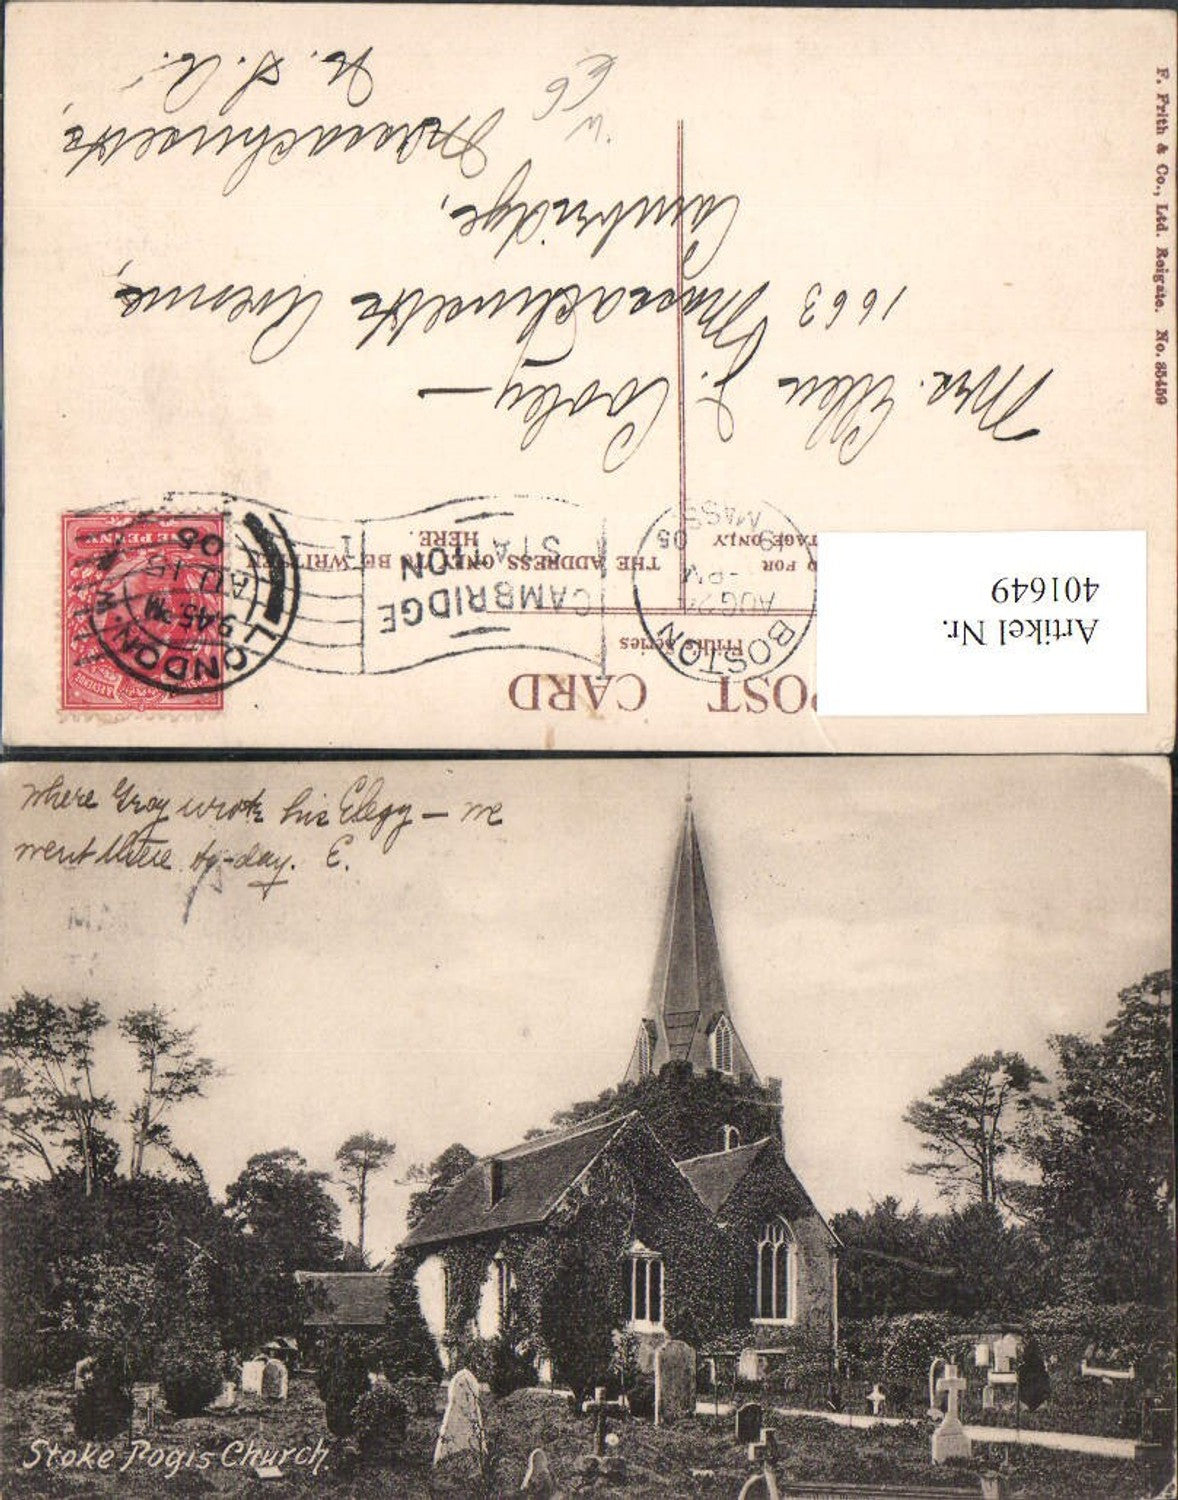 POST CARD
Frith's Series
THE ADDRESS ONLY TO BE WRITTEN
HERE.
F. Frith & Co., Ltd. Reigate. No. 35459
Artikel Nr.
401649
BOSTON
AUG 24
05
MASS.
CAMBRIDGE
STATION
1
LONDON. W
9.45 PM
AU 15
05
Mrs. Ellen J. Cooley—
1663 Massachusetts Avenue,
Cambridge,
Massachusetts,
U. S. A.
Where Gray wrote his Elegy — we
went there to-day. E.
Stoke Pogis Church.